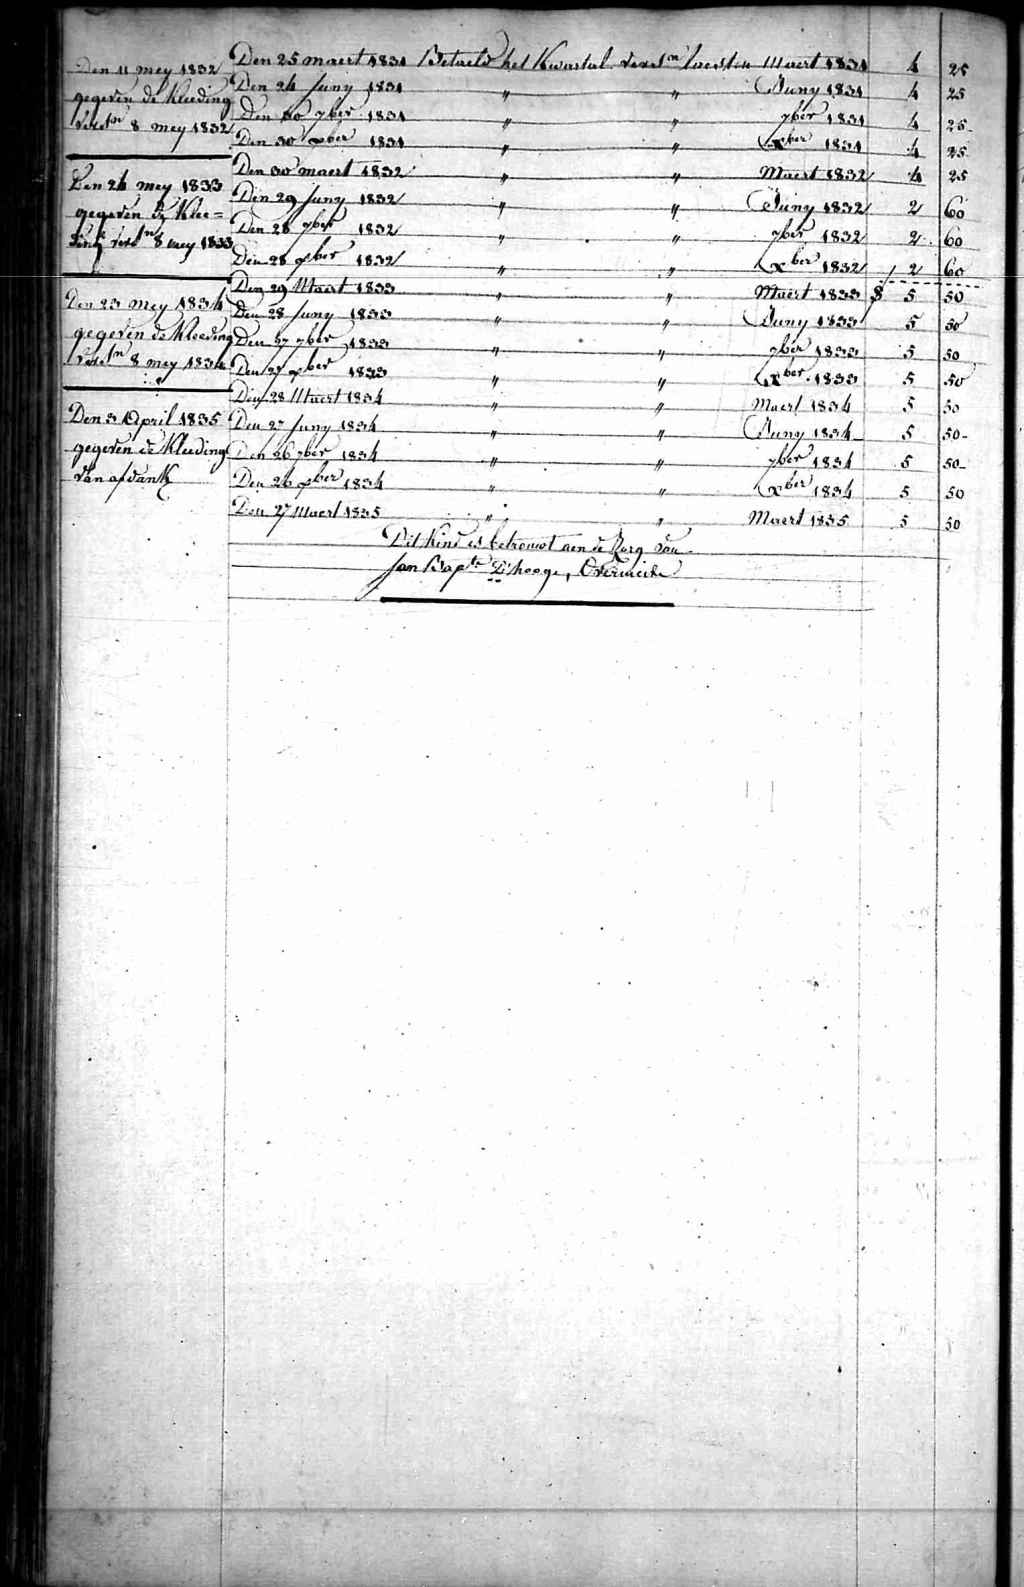 Den 11 mey 1832
gegeven de Kleeding
verstn 8 mey 1832
Den 24 mey 1833
gegeven de Klee=
ding verstn 8 mey 1833
Den 23 mey 1834
gegeven de Kleeding
verstn 8 mey 1834
Den 3 April 1835
gegeven de Kleeding
van afdank
Den 25 maert 1831 Betaeld het Kwartal verstn laesten Maert 1831 4 25
Den 24 Juny 1831 " " Juny 1831 4 25
Den 30 7ber 1831 " " 7ber 1831 4 25
Den 30 xber 1831 " " xber 1831 4 25
Den 30 maert 1832 " " Maert 1832 4 25
Den 29 Juny 1832 " " Juny 1832 2 60
Den 28 7ber 1832 " " 7ber 1832 2 60
Den 28 xber 1832 " " xber 1832 2 60
Den 29 Maert 1833 " " Maert 1833 5 50
Den 28 Juny 1833 " " Juny 1833 5 50
Den 27 7ber 1833 " " 7ber 1833 5 50
Den 27 xber 1833 " " xber 1833 5 50
Den 28 Maert 1834 " " Maert 1834 5 50
Den 27 Juny 1834 " " Juny 1834 5 50
Den 26 7ber 1834 " " 7ber 1834 5 50
Den 26 xber 1834 " " xber 1834 5 50
Den 27 Maert 1835 " " Maert 1835 5 50
Dit Kind is betrouwt aen de Zorg van
Jan Bapte D'hooge, Overmeire